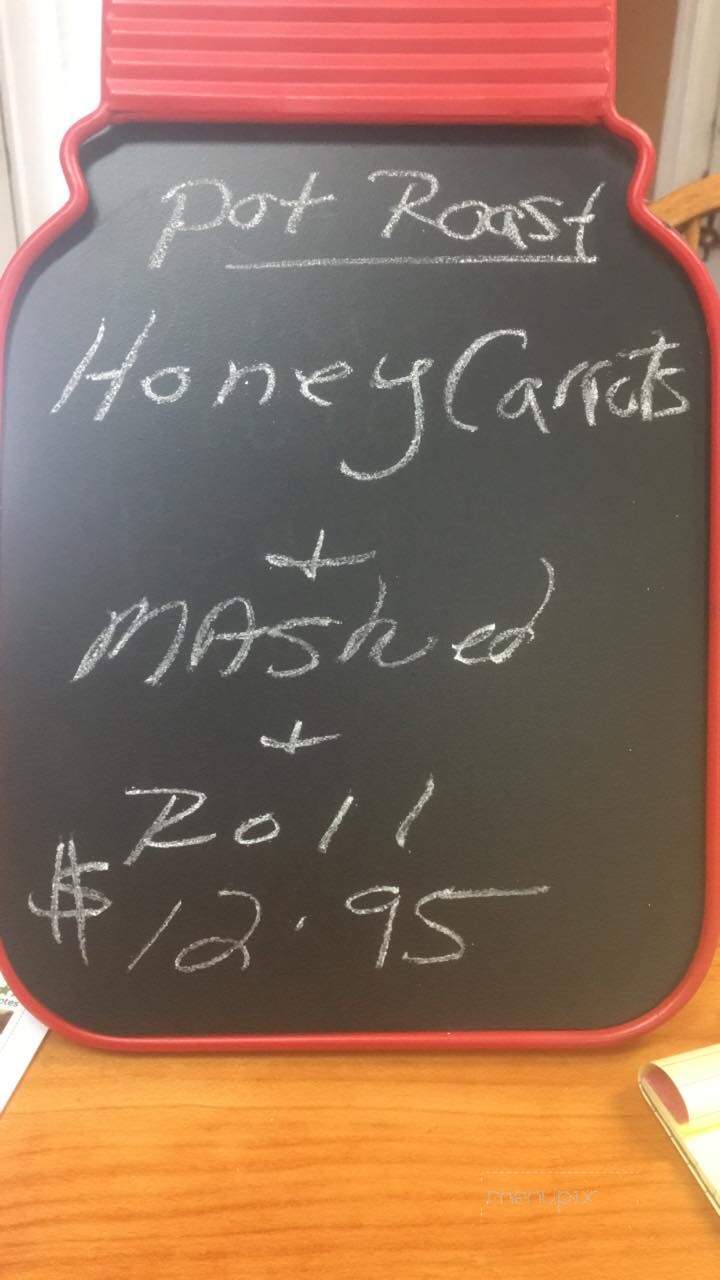 Pot Roast
Honey Carrots
+
MAShed
+
Roll
$12.95
otes
menupix